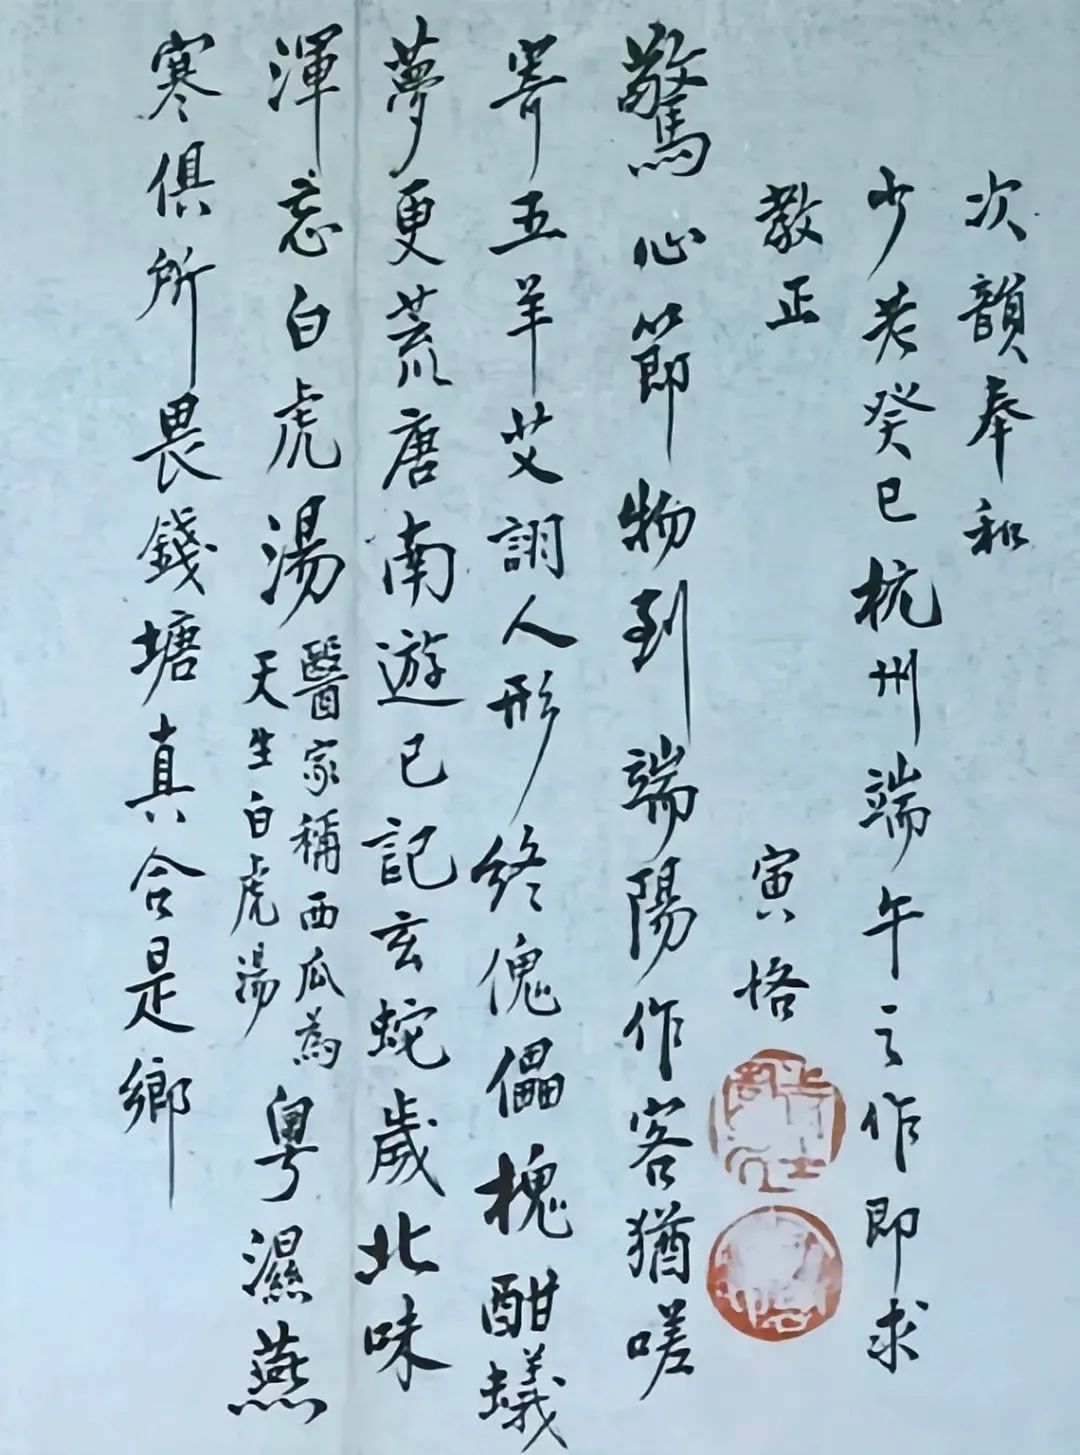 次韻奉和
少老癸巳杭州端午之作即求
教正
寅恪
驚心節物到端陽作客猶嗟
寄五羊艾詡人形終傀儡槐酣蟻
夢更荒唐南遊已記玄蛇歲北味
渾忘白虎湯
醫家稱西瓜為
天生白虎湯
粵濕燕
寒俱所畏錢塘真合是鄉